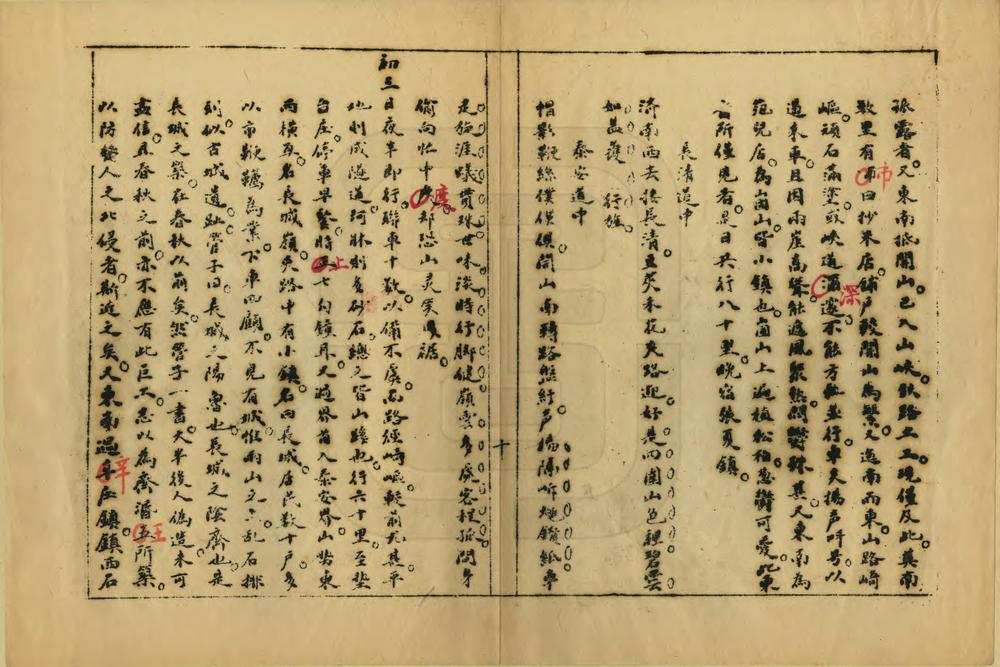 孤露者又東南抵開山已入山峽鐵路土工現僅及此莫南
數里有市曰抄米店鋪戶較開山為繁又迤南而東山路崎
嶇頑石滿塗或峽道深邃不能方軌並行車夫揚聲呼号以
過來車且因兩崖高聳能遏風聚熱悶鬱殊甚又東南為
范兒店為崮山皆小鎮也崮山上遍植松柏葱鬱可愛此東
者所僅見者是日共行八十里晚宿張夏鎮
長清道中
濟南西去接長清五荚禾花夾路迎好是四圍山色裡碧雲
如蓋護行旌
泰安道中
帽影鞭絲僕僕俱開山南轉路盤紆声揚隔岍
是旋渡蟻貫珠世味淡時行脚健嶺雲多處客程孤問年
偷向忙中度却恐山灵笑曳裾
初三日夜半即行聯車十數以備不虞名路經崎嶇較前尤甚平
地則成隧道河牀則多砂石總之皆山路也行六十里至墊
台庄停車早餐時止七句鎖耳又過界首入泰安界山勢東
西橫亙名長城嶺夾路中有小鎮名曰長城店民數十戶多
以市鞭韉為業下車四顧不見有城惟兩山之亂石排
列似古城遺趾管子曰長城之陽魯也長城之陰齊也是
長城之築在春秋以前矣然管子一書大半後人偽造未可
盡信且春秋之前亦不應有此巨工志以為齊湣王所築
以防楚人之北侵者斯近之矣又東南過辛庄鎮鎮西石
十